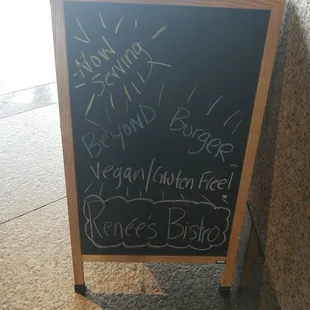 Now
Serving
BeYOND Burger
Vegan/Gluten Free!
Renée's Bistro